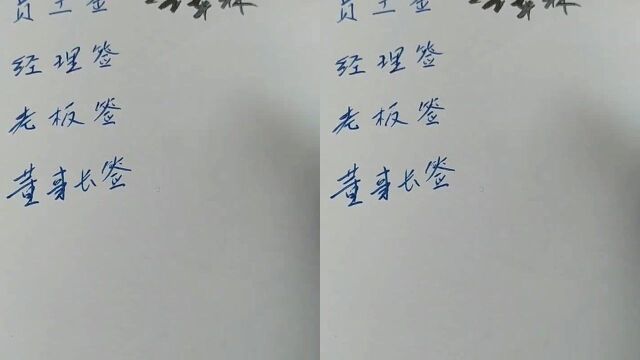 员工签
经理签
老板签
董事长签
员工签
经理签
老板签
董事长签